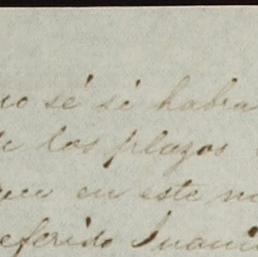 no sé si habra
de los plazos
en este
referido Juani